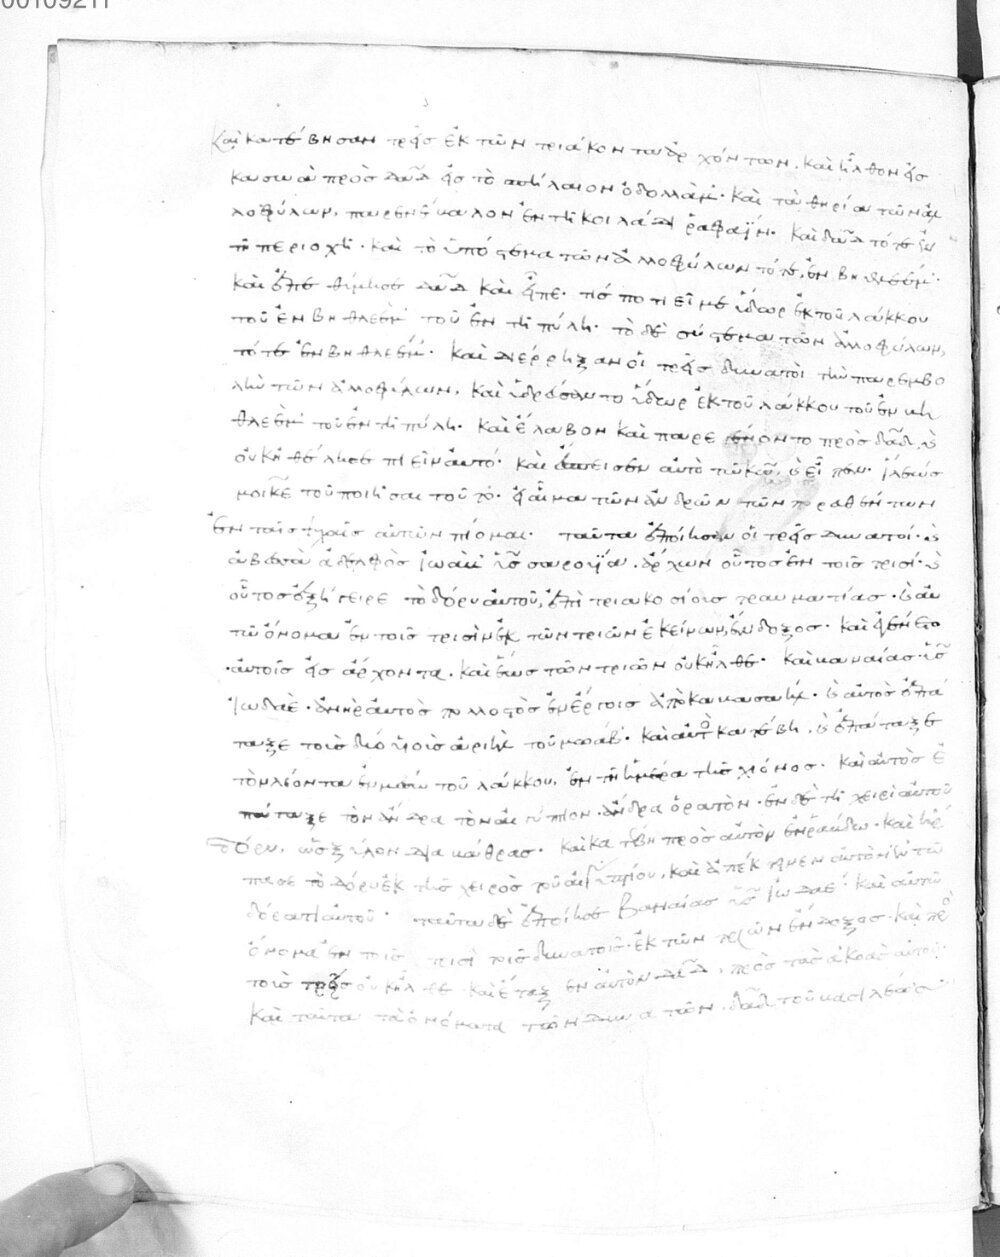 00109211
Καὶ κατέβησαν τρεῖς ἐκ τῶν τριάκοντα ἀρχόντων. καὶ ἦλθον εἰς
κασωὰ πρὸς δαδ εἰς τὸ σπήλαιον ὀδολλάμ· καὶ τὰ θηρία τῶν ἀλ
λοφύλων, παρενέβαλον ἐν τῆ κοιλάδι ῥαφαΐν· καὶ δαδ τότε ἐν
τῆ περιοχῆ· καὶ τὸ ὑπόστεμα τῶν ἀλλοφύλων τότε, ἐν βηθλεέμ·
καὶ ἐπεθύμησε δαδ καὶ εἶπε· τίς ποτιεῖ με ὕδωρ ἐκ τοῦ λάκκου
τοῦ ἐν βηθλεέμ τοῦ ἐν τῆ πύλη· τὸ δὲ σύστεμα τῶν ἀλλοφύλων,
τότε ἐν βηθλεέμ· καὶ διέρρηξαν οἱ τρεῖς δυνατοὶ τὴν παρεμβο
λὴν τῶν ἀλλοφύλων, καὶ ὑδρεύσαντο ὕδωρ ἐκ τοῦ λάκκου τοῦ ἐν βη
θλεὲμ τοῦ ἐν τῆ πύλη· καὶ ἔλαβον καὶ παρεγένοντο πρὸς δαδ, καὶ
οὐκ ἠθέλησε πιεῖν αὐτό· καὶ ἔσπεισεν αὐτὸ τῶ κω, καὶ εἶπεν· ἵλεώς
μοι κε τοῦ ποιῆσαι τοῦτο· εἰ αἷμα τῶν ἀνδρῶν τῶν πορευθέντων
ἐν ταῖς ψυχαῖς αὐτῶν πίομαι· ταῦτα ἐποίησαν οἱ τρεῖς δυνατοί· καὶ
ἀβεσσὰ ἀδελφὸς ἰωὰβ υἱὸς σαρουΐα· ἄρχων οὗτος ἐν τοῖς τρισί· καὶ
οὗτος ἐξήγειρε τὸ δόρυ αὐτοῦ, ἐπὶ τριακοσίοις τραυματίας· καὶ αὐ
τῶ ὄνομα ἐν τοῖς τρισὶν ἐκ τῶν τριῶν ἐκείνων, ἔνδοξος· καὶ ἐγένετο
αὐτοῖς εἰς ἄρχοντα· καὶ ἕως τῶν τριῶν οὐκ ἦλθε· καὶ βαναίας υἱὸς
ἰωδαὲ· ἀνὴρ αὐτὸς πολλοστὸς ἐν ἔργοις ἀπὸ καβασαὴλ· καὶ αὐτὸς ἐπά
ταξε τοὺς δύο υἱοὺς ἀριὴλ τοῦ μωάβ· καὶ αὐτὸ κατέβη, καὶ ἐπάταξε
τὸν λέοντα ἐν μέσω τοῦ λάκκου, ἐν τῆ ἡμέρα τῆς χιόνος· καὶ αὐτὸς ἐ
πάταξε τὸν ἄνδρα τὸν αἰγύπτιον· ἄνδρα ὁρατὸν· ἐν δὲ τῆ χειρὶ αὐτοῦ
δόρυ, ὡς ξύλον διαβάθρας· καὶ κατέβη πρὸς αὐτὸν ἐν ῥάβδω· καὶ ἥρ
πασε τὸ δόρυ ἐκ τῆς χειρὸς τοῦ αἰγυπτίου, καὶ ἀπέκτεινεν αὐτὸν ἐν τῶ
δόρατι αὐτοῦ· ταῦτα δὲ ἐποίησε βαναίας υἱὸς ἰωδαέ· καὶ αὐτῶ
ὄνομα ἐν τοῖς τρισὶ τοῖς δυνατοῖς· ἐκ τῶν τριῶν ἔνδοξος· καὶ πρὸς
τοὺς τρεῖς οὐκ ἦλθε· καὶ ἔταξεν αὐτὸν δαδ, πρὸς τὰς ἀκοὰς αὐτοῦ·
Καὶ ταῦτα τὰ ὀνόματα τῶν δυνατῶν δαδ τοῦ βασιλέως·